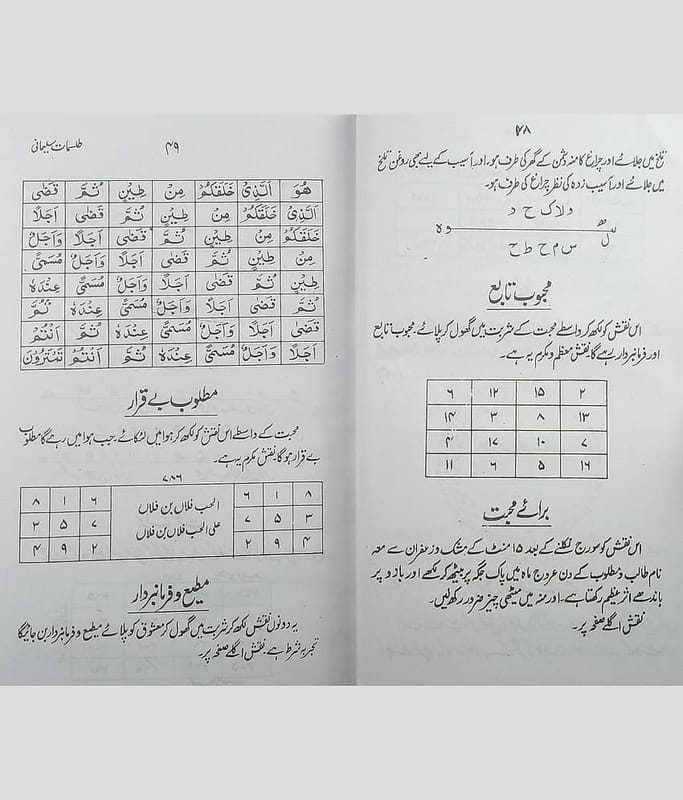 ۴۸
تلخ میں جلائے اور چراغ کا منہ دشمن کے گھر کی طرف ہو۔ اور آسیب کے لیے بھی روغن تلخ
میں جلائے اور آسیب زدہ کی نظر چراغ کی طرف ہو۔
د لا ک ح د
وہ
س م ح ط ح
محبوب تابع
اس نقش کو لکھ کر واسطے محبت کے شربت میں گھول کر پلائے محبوب تابع
اور فرمانبردار رہے گا نقش معظم و مکرم یہ ہے۔
۲ ۱۵ ۱۲ ۶
۱۳ ۸ ۳ ۱۴
۷ ۱۰ ۱۷ ۴
۱۶ ۵ ۶ ۱۱
برائے محبت
اس نقش کو سورج نکلنے کے بعد ۱۵ منٹ کے مشک و زعفران سے معہ
نام طالب و مطلوب کے دن عروج ماہ میں پاک جگہ پر بیٹھ کر لکھے اور بازو پر
باندھے اثر عظیم رکھتا ہے۔ اور منہ میں میٹھی چیز ضرور رکھ لیں۔
نقش اگلے صفحہ پر۔
۴۹
طلسمات سلیمانی
هُوَ الَّذِیْ خَلَقَکُمْ مِنْ طِیْنٍ ثُمَّ قَضٰی
الَّذِیْ خَلَقَکُمْ مِنْ طِیْنٍ ثُمَّ قَضٰی اَجَلًا
خَلَقَکُمْ مِنْ طِیْنٍ ثُمَّ قَضٰی اَجَلًا وَاَجَلٌ
مِنْ طِیْنٍ ثُمَّ قَضٰی اَجَلًا وَاَجَلٌ مُسَمًّی
طِیْنٍ ثُمَّ قَضٰی اَجَلًا وَاَجَلٌ مُسَمًّی عِنْدَهٗ
ثُمَّ قَضٰی اَجَلًا وَاَجَلٌ مُسَمًّی عِنْدَهٗ ثُمَّ
قَضٰی اَجَلًا وَاَجَلٌ مُسَمًّی عِنْدَهٗ ثُمَّ اَنْتُمْ
اَجَلًا وَاَجَلٌ مُسَمًّی عِنْدَهٗ ثُمَّ اَنْتُمْ تَمْتَرُوْنَ
مطلوب بے قرار
محبت کے واسطے اس نقش کو لکھ کر ہوا میں لٹکائے۔ جب ہوا میں رہے گا مطلوب
بے قرار ہو گا۔ نقش مکرم یہ ہے۔
۷۸۶
۸ ۱ ۶ الحب فلاں بن فلاں ۶ ۱ ۸
۳ ۵ ۷ علی الحب فلاں بن فلاں ۷ ۵ ۳
۴ ۹ ۲ ۲ ۹ ۴
مطیع و فرمانبردار
یہ دونوں نقش لکھ کر شربت میں گھول کر معشوق کو پلائے مطیع و فرمانبردار بن جائیگا
تجربہ شرط ہے۔ نقش اگلے صفحہ پر۔